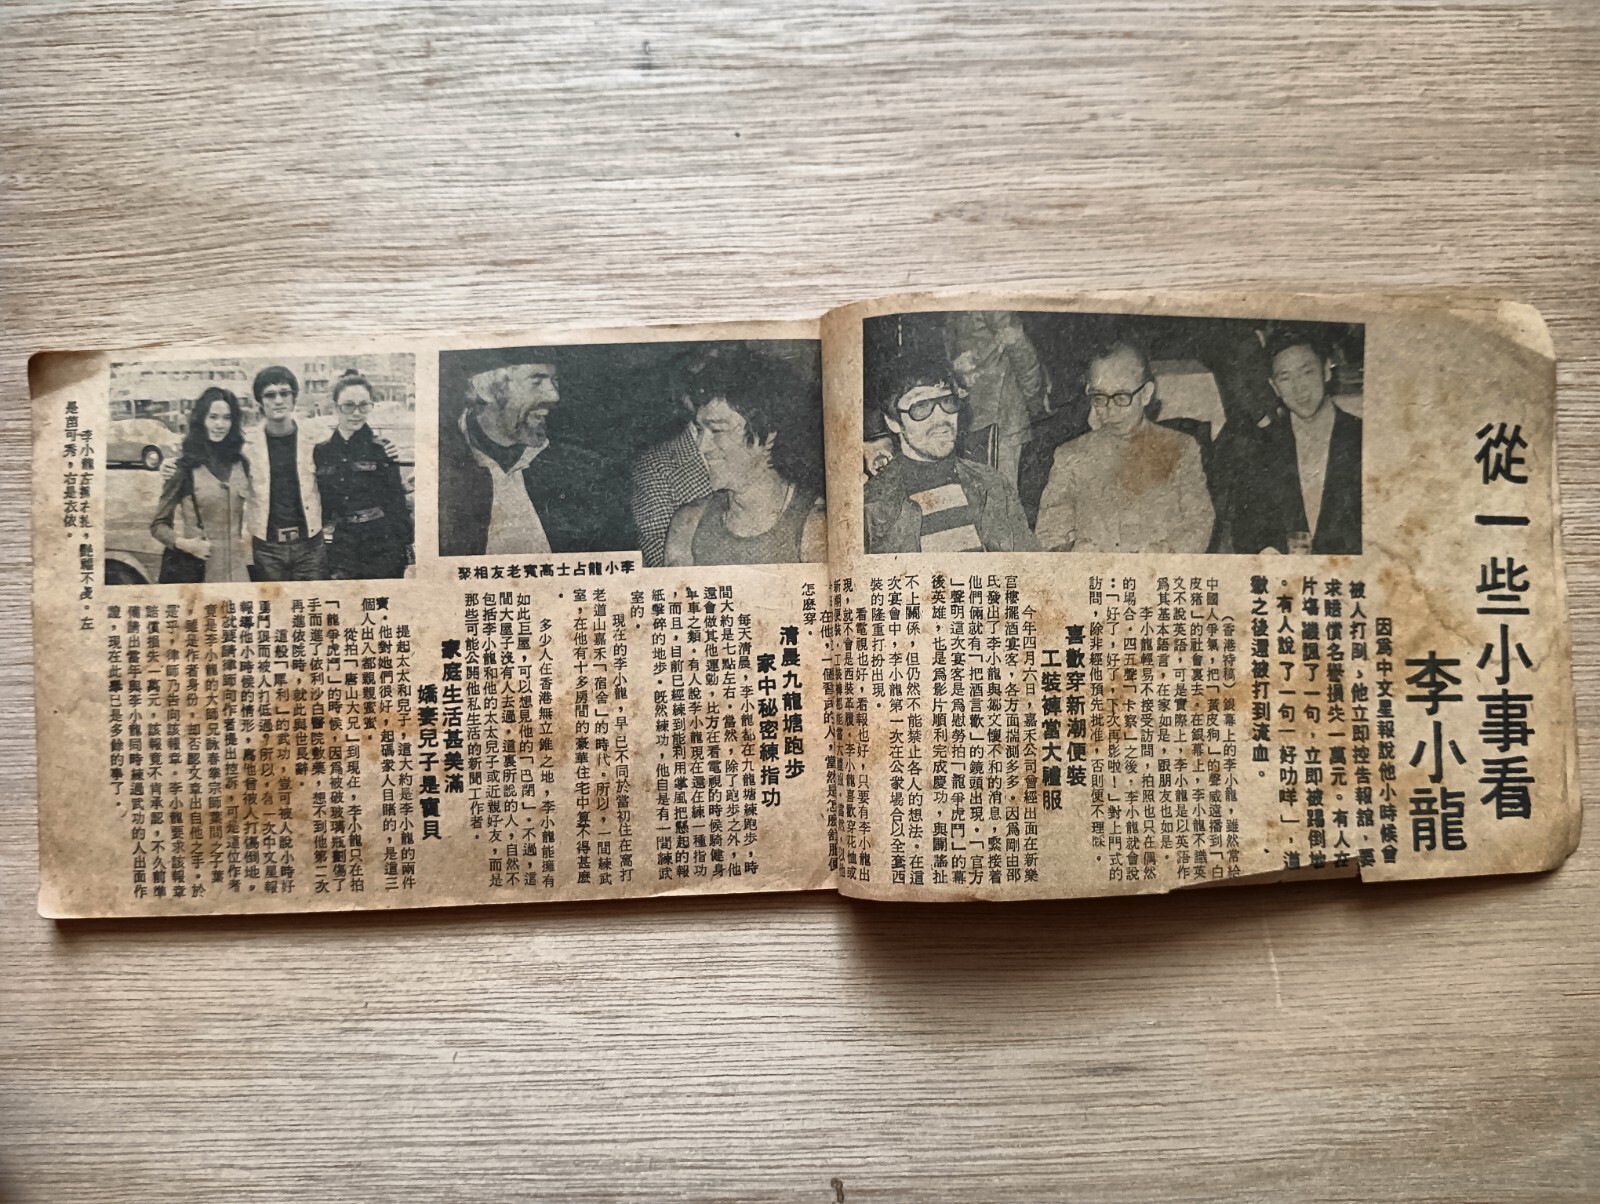 從一些小事看
李小龍
因為中文星報說他小時候會
被人打剮,他立即控告報館,要
求賠償名譽損失一萬元。有人在
片塲譏諷了一句,立即被踢倒地
。有人說了一句「好功咩」,道
歉之後還被打到流血。
(香港特稿)銀幕上的李小龍,雖然常給
中國人爭氣,把「黃皮狗」的聲威遠播到「白
皮猪」的社會裏去。在銀幕上,李小龍不識英
文不說英語,可是實際上,李小龍是以英語作
為其基本語言,在家如是,跟朋友也如是。
李小龍輕易不接受訪問,拍照也只在偶然
的場合。四五聲「卡察」之後,李小龍就會說
:「好了,好了,下次再影啦!」對上門式的
訪問,除非經他預先批准,否則便不理睬。
喜歡穿新潮便裝
工裝褲當大禮服
今年四月六日,嘉禾公司曾經出面在新樂
官樓擺酒宴客,各方面揣測多多。因為剛由邵
氏發出了李小龍與鄒文懷不和的消息,緊接着
他們倆就有「把酒言歡」的鏡頭出現。「官方
」聲明這次宴客是為慰勞拍「龍爭虎鬥」的幕
後英雄,也是為影片順利完成慶功,與闢謠扯
不上關係,但仍然不能禁止各人的想法。在這
次宴會中,李小龍第一次在公衆場合以全套西
裝的隆重打扮出現。
看電視也好,看報也好,只要有李小龍出
現,就不會是西裝革履。李小龍喜歡穿花恤或
怎麼穿。
清晨九龍塘跑步
家中秘密練指功
每天清晨,李小龍必在九龍塘練跑步,時
間大約是七點左右。當然,除了跑步之外,他
還會做其他運動,比方在看電視的時候騎健身
單車之類。有人說李小龍現在還在練一種指功
,而且,目前已經練到能利用掌風把懸起的報
紙擊碎的地步。旣然練功,他自是有一間練武
室的。
現在的李小龍,早已不同於當初住在窩打
老道山嘉禾「宿舍」的時代。所以,一間練武
室,在他有十多房間的豪華住宅中算不得甚麼
。
多少人在香港無立錐之地,李小龍能擁有
如此巨屋,可以想見他的「巴閉」。不過,這
間大屋子沒有人去過。這裏所說的人,自然不
包括李小龍和他的太太兒子或近親好友,而是
那些可能公開他私生活的新聞工作者。
家庭生活甚美滿
嬌妻兒子是寶貝
提起太太和兒子,這大約是李小龍的兩件
寶。他對她們很好,起碼衆人目睹的,是這三
個人出入都親親蜜蜜。
從拍「唐山大兄」到現在,李小龍只在拍
「龍爭虎鬥」的時候,因為被破玻璃瓶劃傷了
手而進了依利沙白醫院數藥,想不到他第二次
再進依院時,就此與世長辭。
這般「犀利」的武功,豈可被人說小時好
勇鬥狠而被人打低過?所以,有一次中文星報
報導他小時候的情形,寫他曾被人打傷倒地。
他就要請律師向作者提出控訴,可是這位作者
竟是李小龍的大師兄詠春拳宗師葉問之子葉
準,雖是作者身份,却否認文章出自他之手。於
是乎,律師乃告向該報章。李小龍要求該報章
賠償損失一萬元,該報竟不肯承認,不久前準
備請出當年與李小龍同時練過武功的人出面作
證。現在此事已是多餘的事了。
李小龍占士高賓老友相聚
李小龍左擁右抱,艷福不淺。左
是苗可秀,右是衣依。